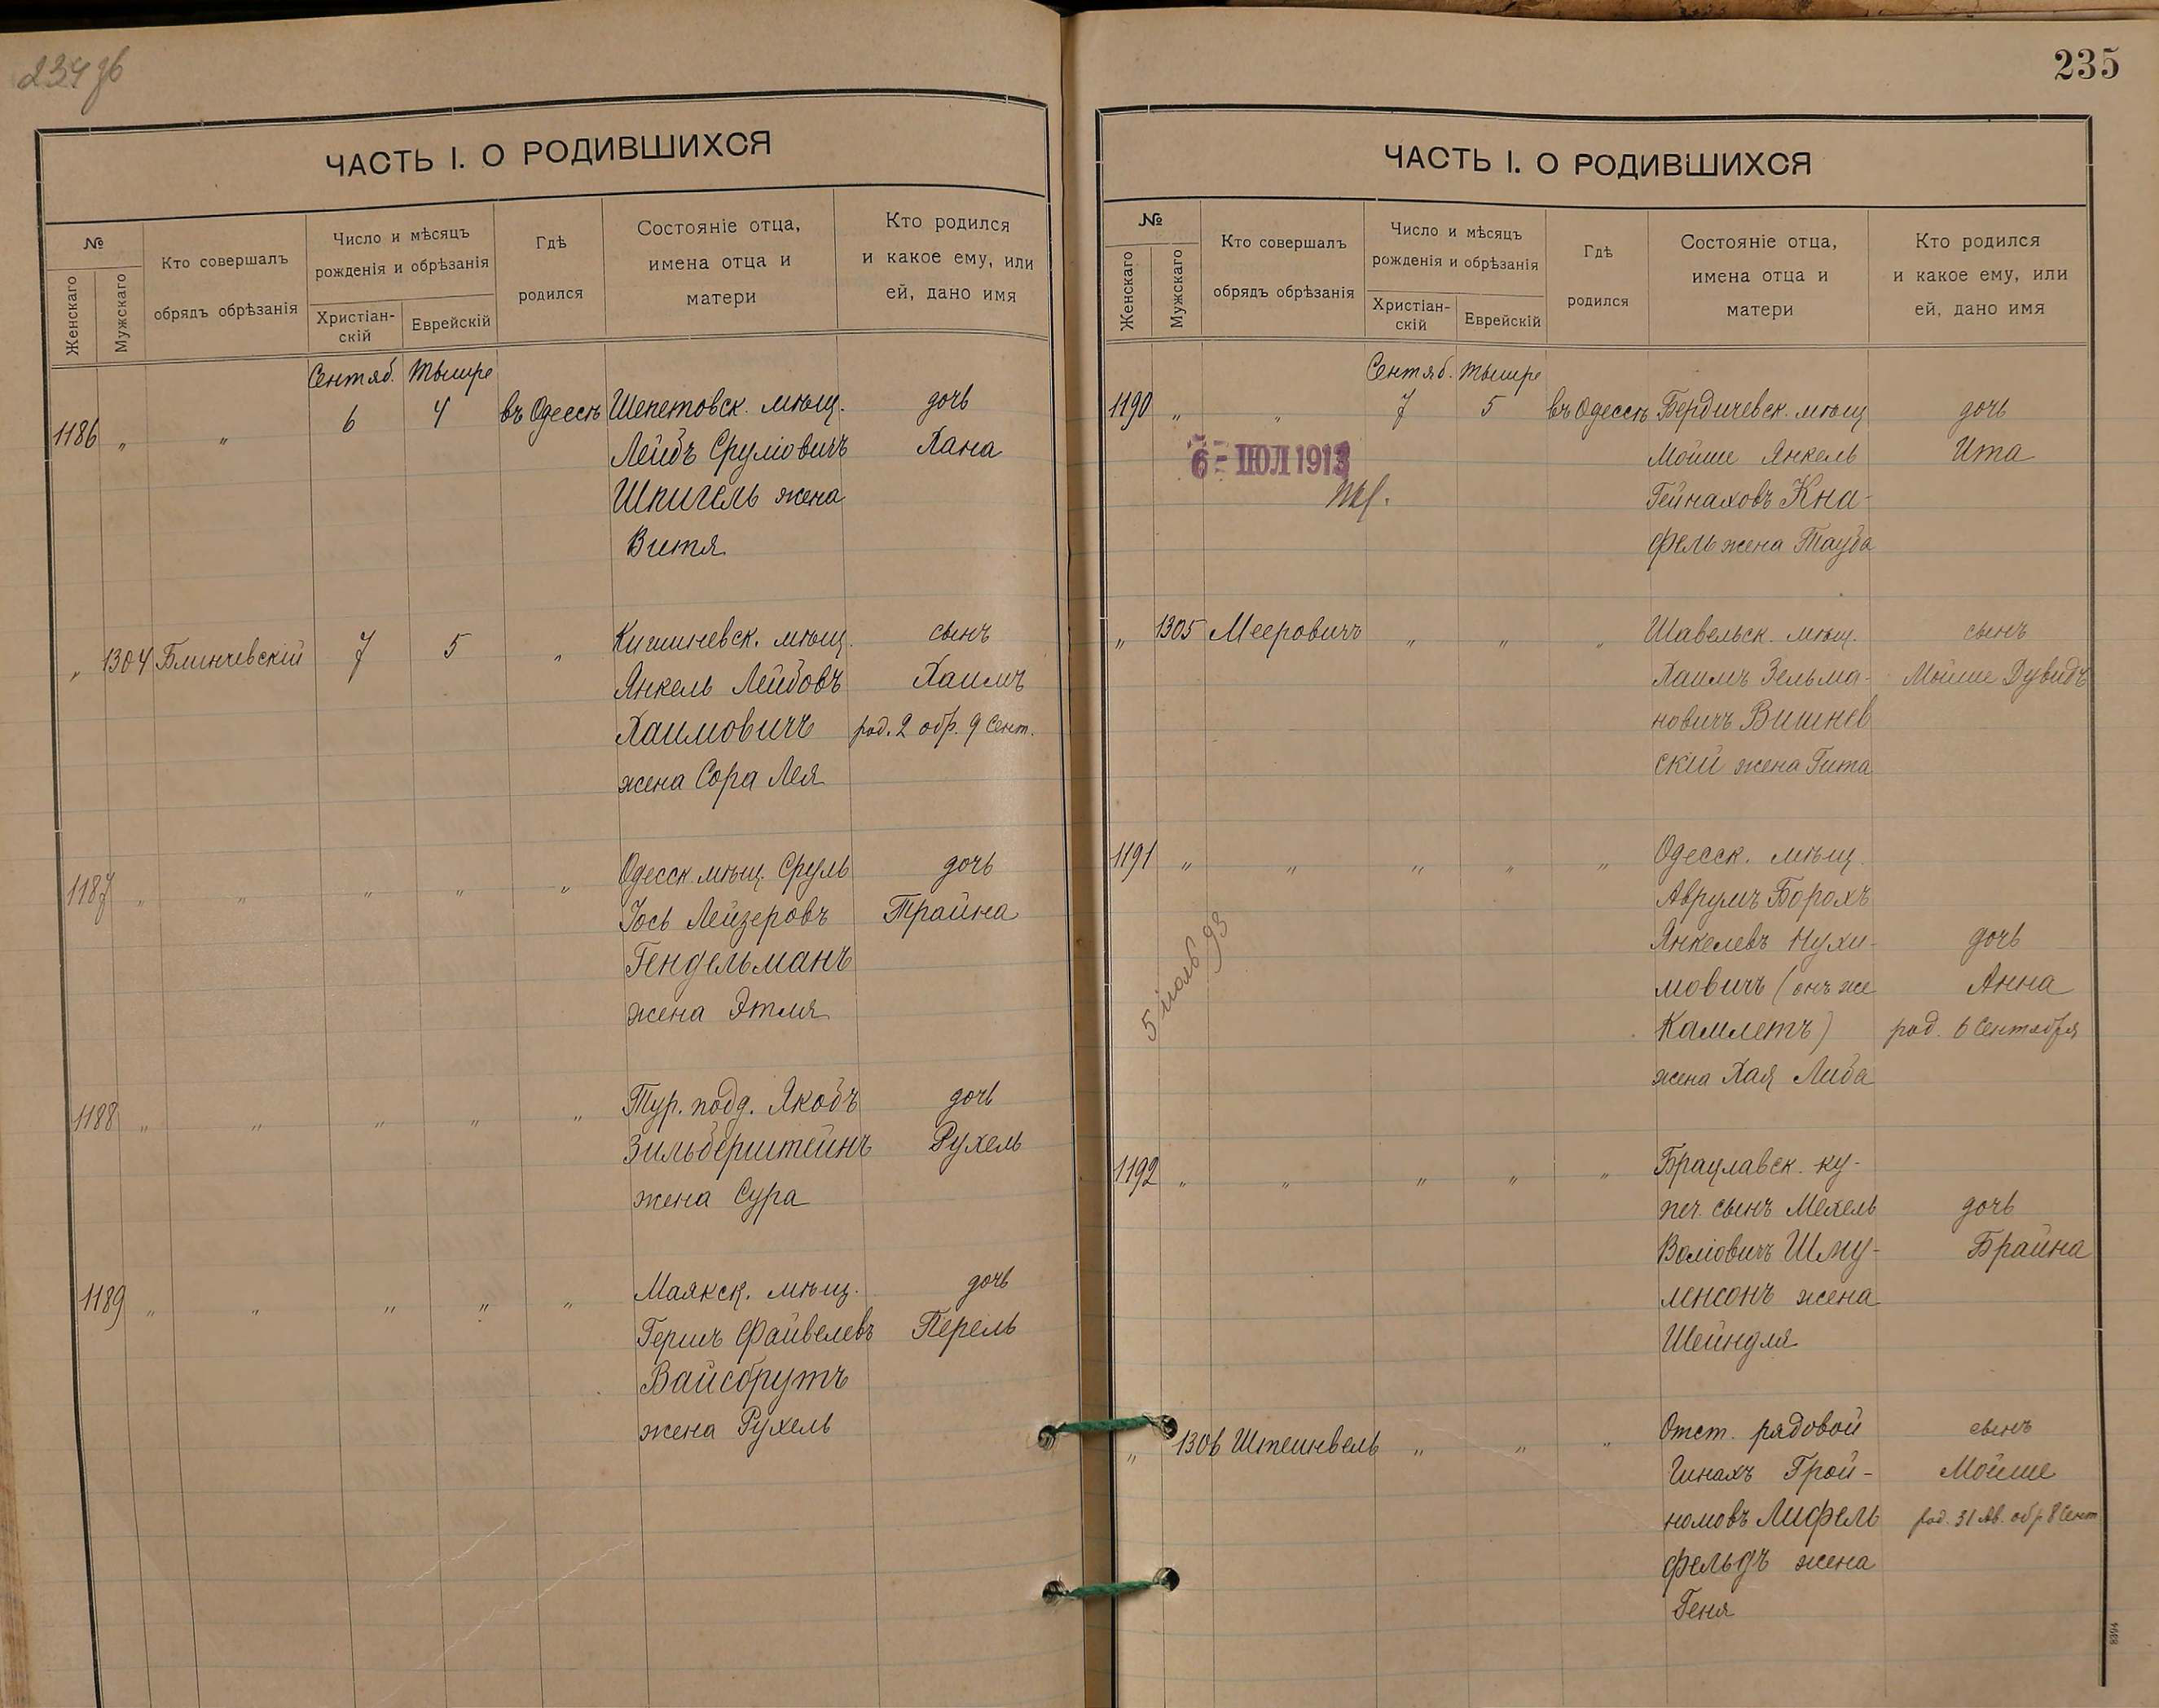 234 об
ЧАСТЬ I. О РОДИВШИХСЯ
№
Женскаго
Мужскаго
Кто совершалъ
обрядъ обрѣзанія
Число и мѣсяцъ
рожденія и обрѣзанія
Христіан-
скій
Еврейскій
Гдѣ
родился
Состояніе отца,
имена отца и
матери
Кто родился
и какое ему, или
ей, дано имя
Сентяб. Тышре
1186 „ „ 6 4 въ Одессѣ Шепетовск. мѣщ. дочь
Лейбъ Сруліовичъ Хана
Шпигель жена
Витя
„ 1304 Блинчевскій 7 5 „ Кишиневск. мѣщ. сынъ
Янкель Лейбовъ Хаимъ
Хаимовичъ род. 2 обр. 9 Сент.
жена Сора Лея
1187 „ „ „ „ „ Одесск мѣщ. Сруль дочь
Іось Лейзеровъ Трайна
Гендельманъ
жена Этля
1188 „ „ „ „ „ Тур. подд. Якобъ дочь
Зильберштейнъ Рухель
жена Сура
1189 „ „ „ „ „ Маякск. мѣщ. дочь
Гершъ Файвелевъ Перель
Вайсбрутъ
жена Рухель
235
ЧАСТЬ I. О РОДИВШИХСЯ
№
Женскаго
Мужскаго
Кто совершалъ
обрядъ обрѣзанія
Число и мѣсяцъ
рожденія и обрѣзанія
Христіан-
скій
Еврейскій
Гдѣ
родился
Состояніе отца,
имена отца и
матери
Кто родился
и какое ему, или
ей, дано имя
Сентяб. Тышре
1190 „ „ 7 5 въ Одессѣ Бердичевск. мѣщ дочь
6 - ІЮЛ 1913
Мойше Янкель Ита
Гейнаховъ Кна-
фель жена Тауба
„ 1305 Мееровичъ „ „ „ Шавельск. мѣщ. сынъ
Хаимъ Зельма- Мойше Дувидъ
новичъ Вишнев
скій жена Гита
1191 „ „ „ „ „ Одесск. мѣщ.
Аврумъ Борохъ
Янкелевъ Нухи- дочь
мовичъ (онъ же Анна
Камлетъ) род. 6 Сентября
жена Хая Либа
5 іюль 93
1192 „ „ „ „ „ Брацлавск. ку-
печ. сынъ Мехель дочь
Воліовичъ Шму- Брайна
ленсонъ жена
Шейндля
„ 1306 Штеинвель „ „ „ Отст. рядовой сынъ
Гинахъ Грой- Мойше
номовъ Лифель род. 31 Ав. обр 8 Сент
фельдъ жена
Геня